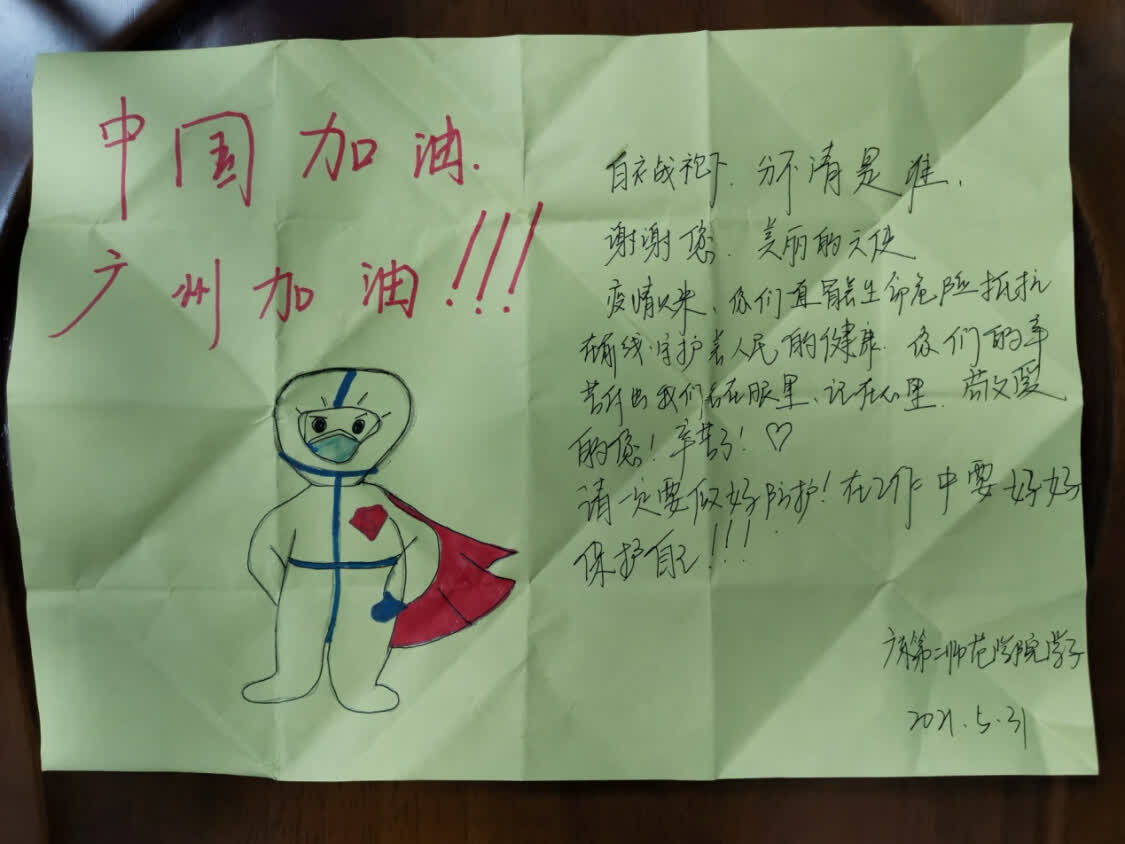 中国加油.
广州加油!!!
白衣战袍下.分不清是谁,
谢谢您.美丽的天使
疫情以来、你们直冒着生命危险抵抗
在前线.守护着人民的健康.你们的辛
苦付出我们看在眼里、记在心里.敬爱
的您!辛苦了!♡
请一定要做好防护!在工作中要好好
保护自己!!!
广东第二师范学院学子
2021.5.31